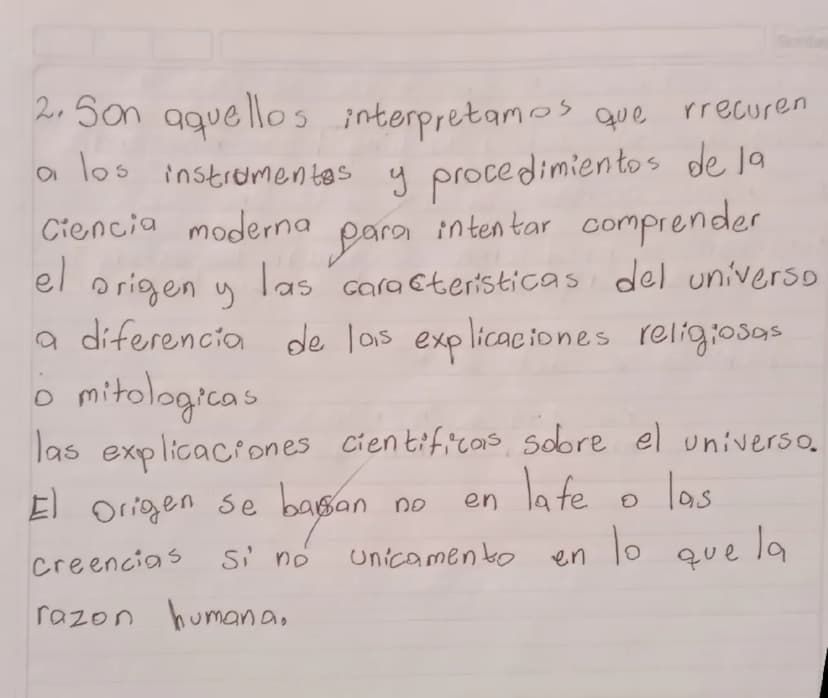 2. Son aquellos interpretamos que rrecuren
a los instrumentos y procedimientos de la
ciencia moderna para intentar comprender
el origen y las caracteristicas del universo
a diferencia de las explicaciones religiosas
o mitologicas
las explicaciones cientificas sobre el universo.
El origen se basan no en la fe o las
creencias si no unicamento en lo que la
razon humana.